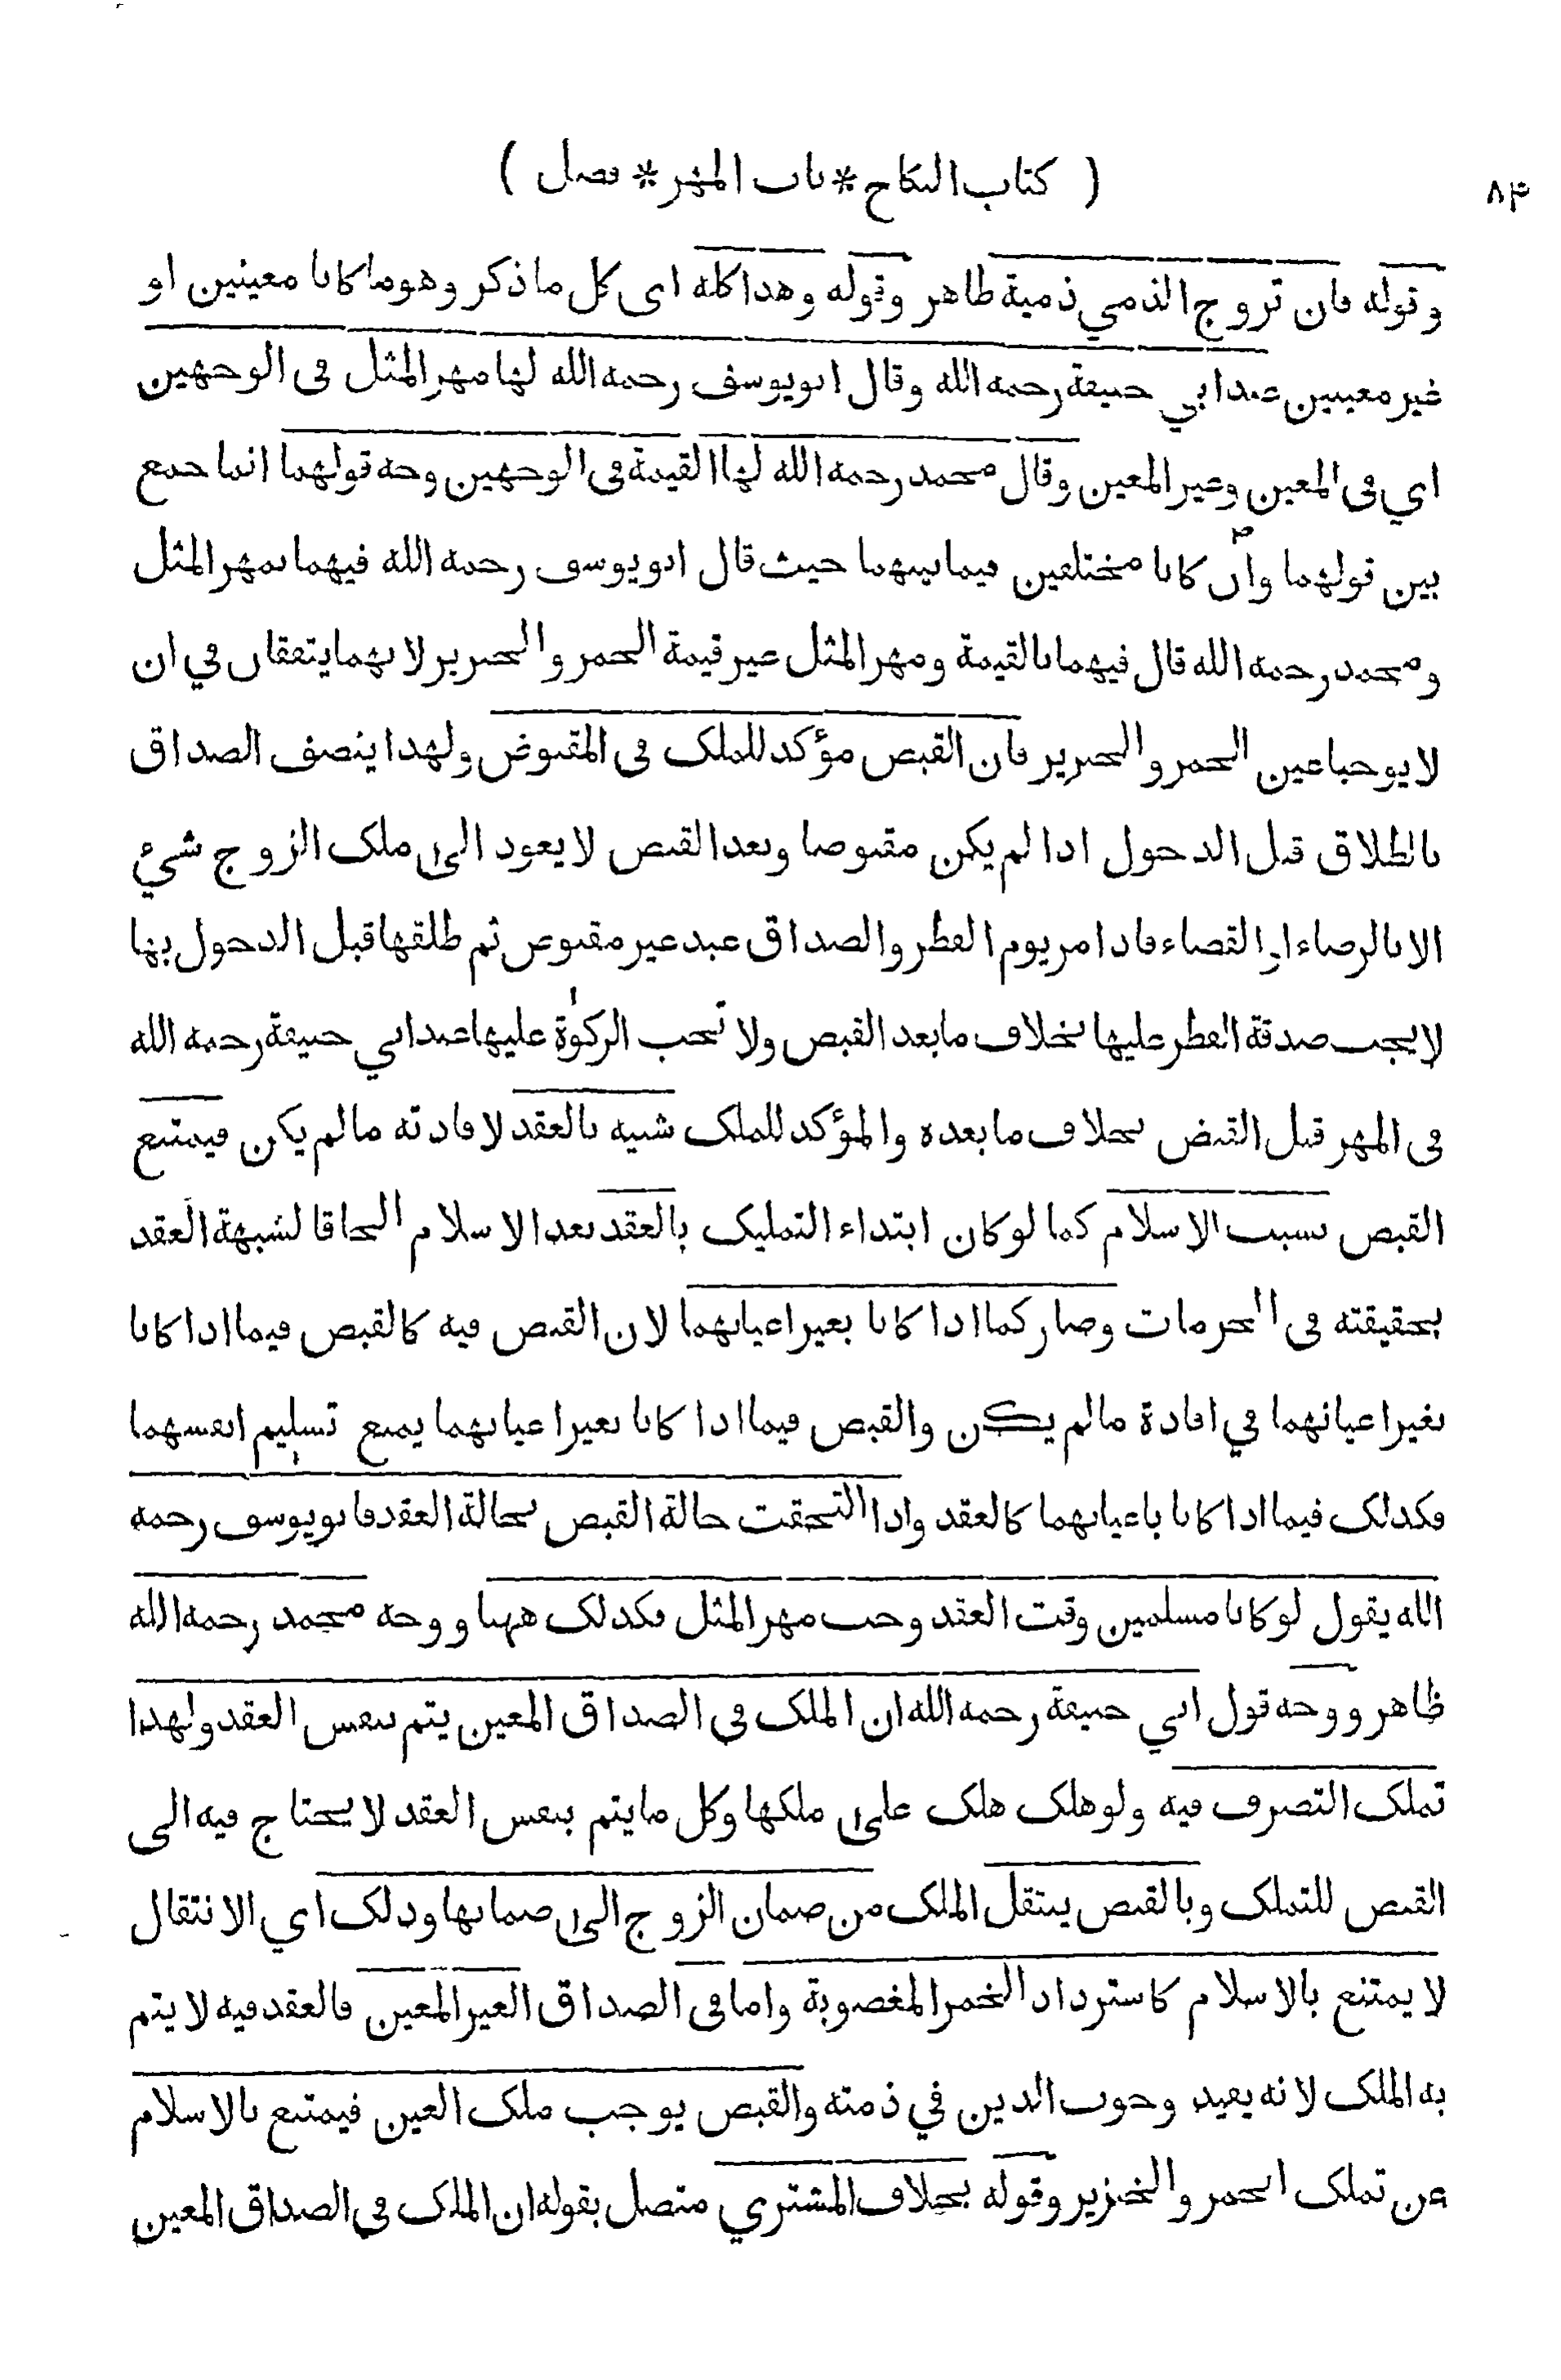 ( كتاب النكاح * باب المهر * فصل )
٨٤
وقوله فان تزوج الذمي ذمية ظاهر وقوله وهذا كله اى كل ما ذكر وهو ما كانا معينين او
غير معينين عند ابي حنيفة رحمه الله وقال ابو يوسف رحمه الله لها مهر المثل فى الوجهين
اي فى المعين وغير المعين وقال محمد رحمه الله لها القيمة فى الوجهين وجه قولهما انما جمع
بين قولهما وان كانا مختلفين فيما بينهما حيث قال ابو يوسف رحمه الله فيهما بمهر المثل
ومحمد رحمه الله قال فيهما بالقيمة ومهر المثل غير قيمة الخمر والخنزير لانهما يتفقان في ان
لا يوجبا عين الخمر والخنزير فان القبض مؤكد للملك فى المقبوض ولهذا ينصف الصداق
بالطلاق قبل الدخول اذا لم يكن مقبوضا وبعد القبض لا يعود الى ملك الزوج شيء
الا بالرضاء او القضاء فاذا مر يوم الفطر والصداق عبد غير مقبوض ثم طلقها قبل الدخول بها
لا يجب صدقة الفطر عليها بخلاف ما بعد القبض ولا تجب الزكوة عليها عند ابي حنيفة رحمه الله
فى المهر قبل القبض بخلاف ما بعده والمؤكد للملك شبيه بالعقد لافادته ما لم يكن فيمتنع
القبض بسبب الاسلام كما لو كان ابتداء التمليك بالعقد بعد الاسلام الحاقا لشبهة العقد
بحقيقته فى الحرمات وصار كما اذا كانا بغير اعيانهما لان القبض فيه كالقبض فيما اذا كانا
بغير اعيانهما في افادة ما لم يكن والقبض فيما اذا كانا بغير اعيانهما يمنع تسليم انفسهما
فكذلك فيما اذا كانا باعيانهما كالعقد واذا التحقت حالة القبض بحالة العقد فابو يوسف رحمه
الله يقول لو كانا مسلمين وقت العقد وجب مهر المثل فكذلك ههنا ووجه محمد رحمه الله
ظاهر ووجه قول ابي حنيفة رحمه الله ان الملك فى الصداق المعين يتم بنفس العقد ولهذا
تملك التصرف فيه ولو هلك هلك على ملكها وكل ما يتم بنفس العقد لا يحتاج فيه الى
القبض للتملك وبالقبض ينتقل الملك من ضمان الزوج الى ضمانها وذلك اي الانتقال
لا يمتنع بالاسلام كاسترداد الخمر المغصوبة واما فى الصداق الغير المعين فالعقد فيه لا يتم
به الملك لانه يفيد وجوب الدين في ذمته والقبض يوجب ملك العين فيمتنع بالاسلام
عن تملك الخمر والخنزير وقوله بخلاف المشتري متصل بقوله ان الملك فى الصداق المعين